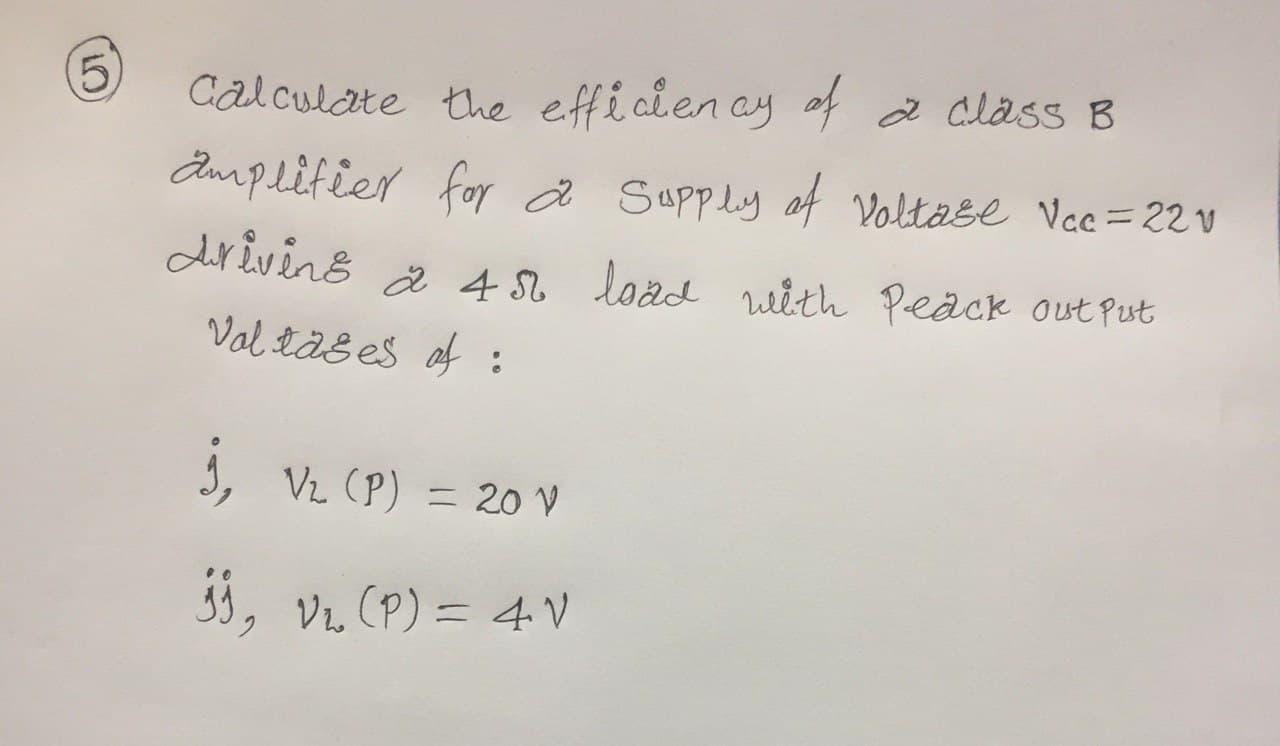 5 Calculate the efficiency of a class B
amplifier for a Supply of Voltage Vcc = 22 v
driving a 4 Ω load with Peack output
Voltages of :
i, VL (P) = 20 V
ii, VL (P) = 4 V